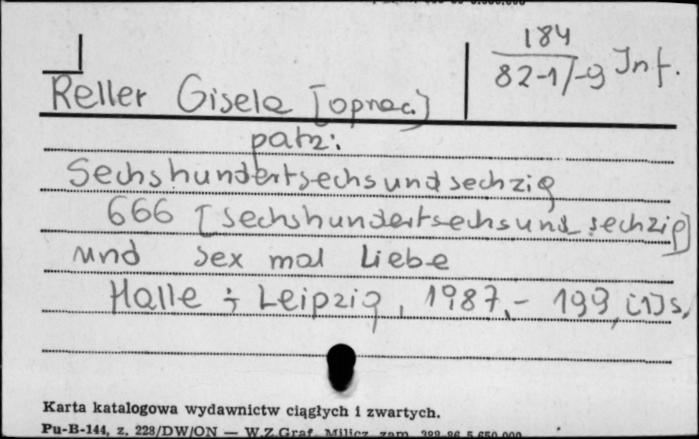 184
82-1/-9 Inf.
Reller Gisela [oprac.]
patrz:
Sechshundertsechsundsechzig
666 [sechshundertsechsundsechzig]
und sex mal Liebe
Halle ; Leipzig, 1987.- 199, [1] s.
Karta katalogowa wydawnictw ciągłych i zwartych.
Pu-B-144, z. 228/DW/ON — W.Z.Graf. Milicz, zam.